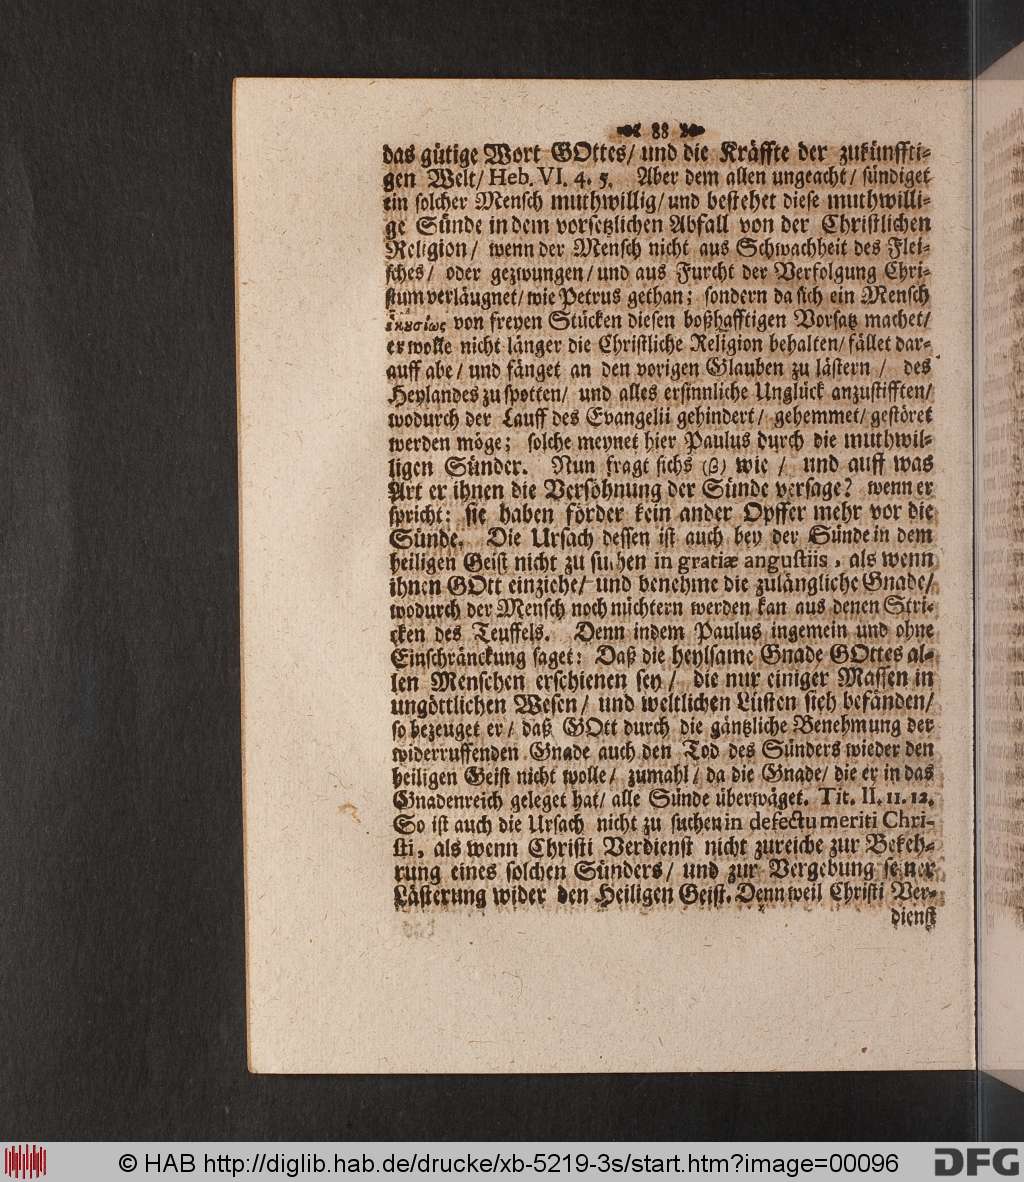 88
das gütige Wort GOttes/ und die Kräffte der zukünffti-
gen Welt/ Heb. VI. 4. 5. Aber dem allen ungeacht/ sündiget
ein solcher Mensch muthwillig/ und bestehet diese muthwilli-
ge Sünde in dem vorsetzlichen Abfall von der Christlichen
Religion/ wenn der Mensch nicht aus Schwachheit des Flei-
sches/ oder gezwungen/ und aus Furcht der Verfolgung Chri-
stum verläugnet/ wie Petrus gethan; sondern da sich ein Mensch
ἑκουσίως von freyen Stücken diesen boßhafftigen Vorsatz machet/
er wolle nicht länger die Christliche Religion behalten/ fället dar-
auff abe/ und fänget an den vorigen Glauben zu lästern/ des
Heylandes zu spotten/ und alles ersinnliche Unglück anzustifften/
wodurch der Lauff des Evangelii gehindert/ gehemmet/ gestöret
werden möge; solche meynet hier Paulus durch die muthwil-
ligen Sünder. Nun fragt sichs (ß) wie/ und auff was
Art er ihnen die Versöhnung der Sünde versage? wenn er
spricht: sie haben förder kein ander Opffer mehr vor die
Sünde. Die Ursach dessen ist auch bey der Sünde in dem
heiligen Geist nicht zu suchen in gratiæ angustiis, als wenn
ihnen GOtt einziehe/ und benehme die zulängliche Gnade/
wodurch der Mensch noch nüchtern werden kan aus denen Stri-
cken des Teuffels. Denn indem Paulus ingemein und ohne
Einschränckung saget: Daß die heylsame Gnade GOttes al-
len Menschen erschienen sey/ die nur einiger Massen in
ungöttlichen Wesen/ und weltlichen Lüsten sich befänden/
so bezeuget er/ daß GOtt durch die gäntzliche Benehmung der
widerruffenden Gnade auch den Tod des Sünders wieder den
heiligen Geist nicht wolle/ zumahl/ da die Gnade/ die er in das
Gnadenreich geleget hat/ alle Sünde überwäget. Tit. II. 11. 12.
So ist auch die Ursach nicht zu suchen in defectu meriti Chri-
sti, als wenn Christi Verdienst nicht zureiche zur Bekeh-
rung eines solchen Sünders/ und zur Vergebung seiner
Lästerung wider den Heiligen Geist. Denn weil Christi Ver-
dienst
© HAB http://diglib.hab.de/drucke/xb-5219-3s/start.htm?image=00096
DFG